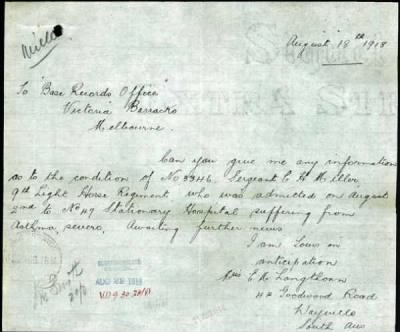 Miller
August 18th 1918
To "Base Records Office"
Victoria Barracks
Melbourne.
Can you give me any information
as to the condition of No 3346. Sergeant E H Miller
9th Light Horse Regiment who was admitted on August
2nd to No 47 Stationary Hospital suffering from
Asthma, severe, Awaiting further news
I am Yours in
anticipation
Mrs E M Langthorn
Goodwood Road
Dayville
South Aus
AUG 1918